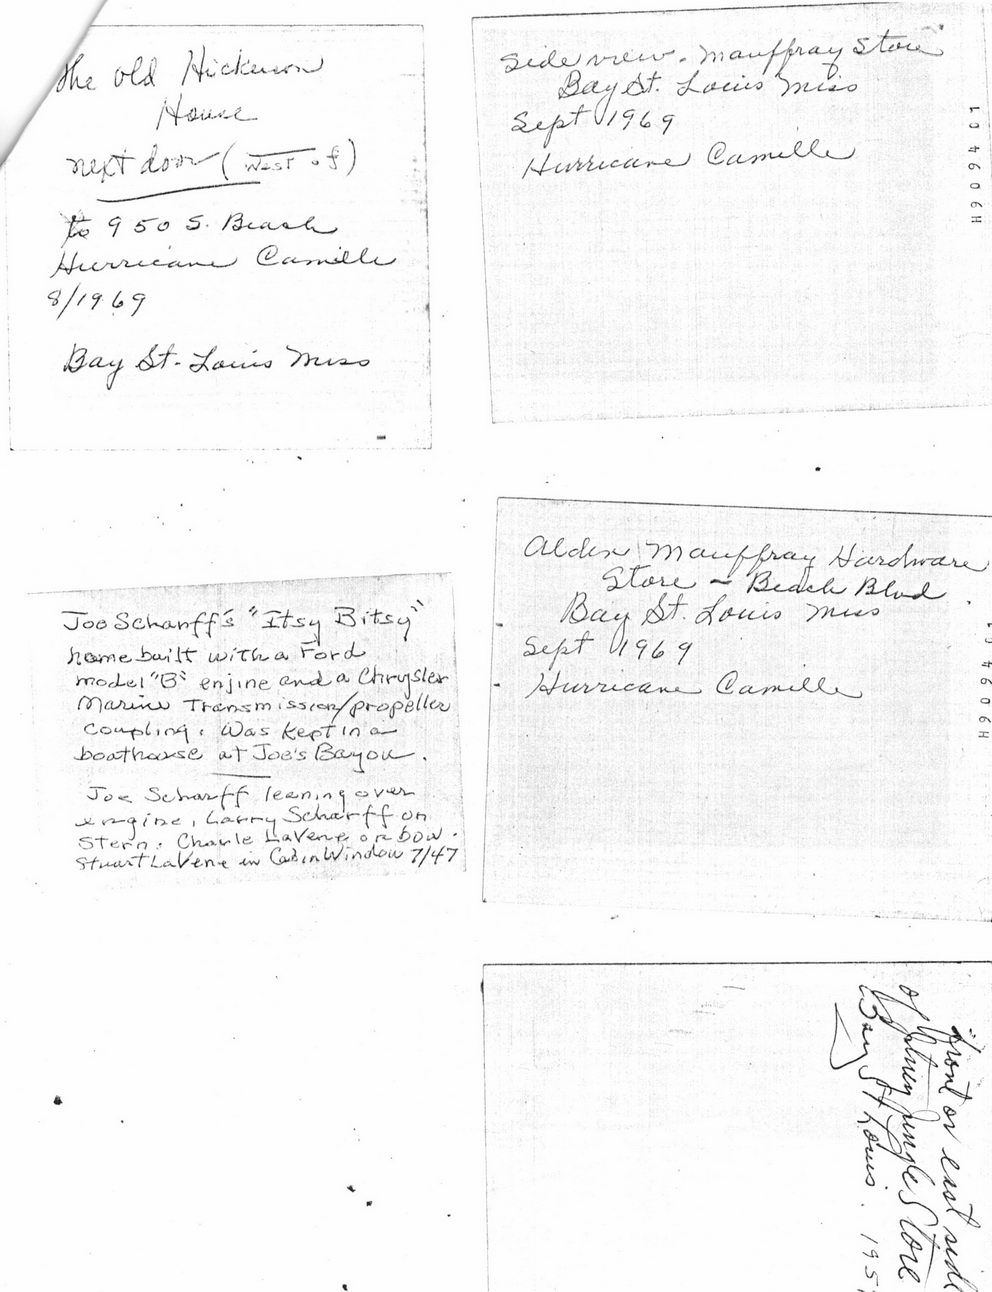 the old Hickerson
House
next door (west of)
to 950 S. Beach
Hurricane Camille
8/1969
Bay St. Louis Miss
Side view. Mauffray Store
Bay St. Louis Miss
Sept 1969
Hurricane Camille
104606H
Joe Scharff's "Itsy Bitsy"
home built with a Ford
model "B" enjine and a Chrysler
Marine Transmission/propeller
coupling. Was kept in a
boathouse at Joe's Bayou.
Joe Scharff leaning over
engine, Larry Scharff on
Stern. Charle LaVene on bow.
Stuart LaVene in Cabin Window 7/47
Alden Mauffray Hardware
Store - Beach Blvd.
Bay St. Louis Miss
Sept 1969
Hurricane Camille
104606H
Front or east side
of Jungle Store
Bay St Louis. 195